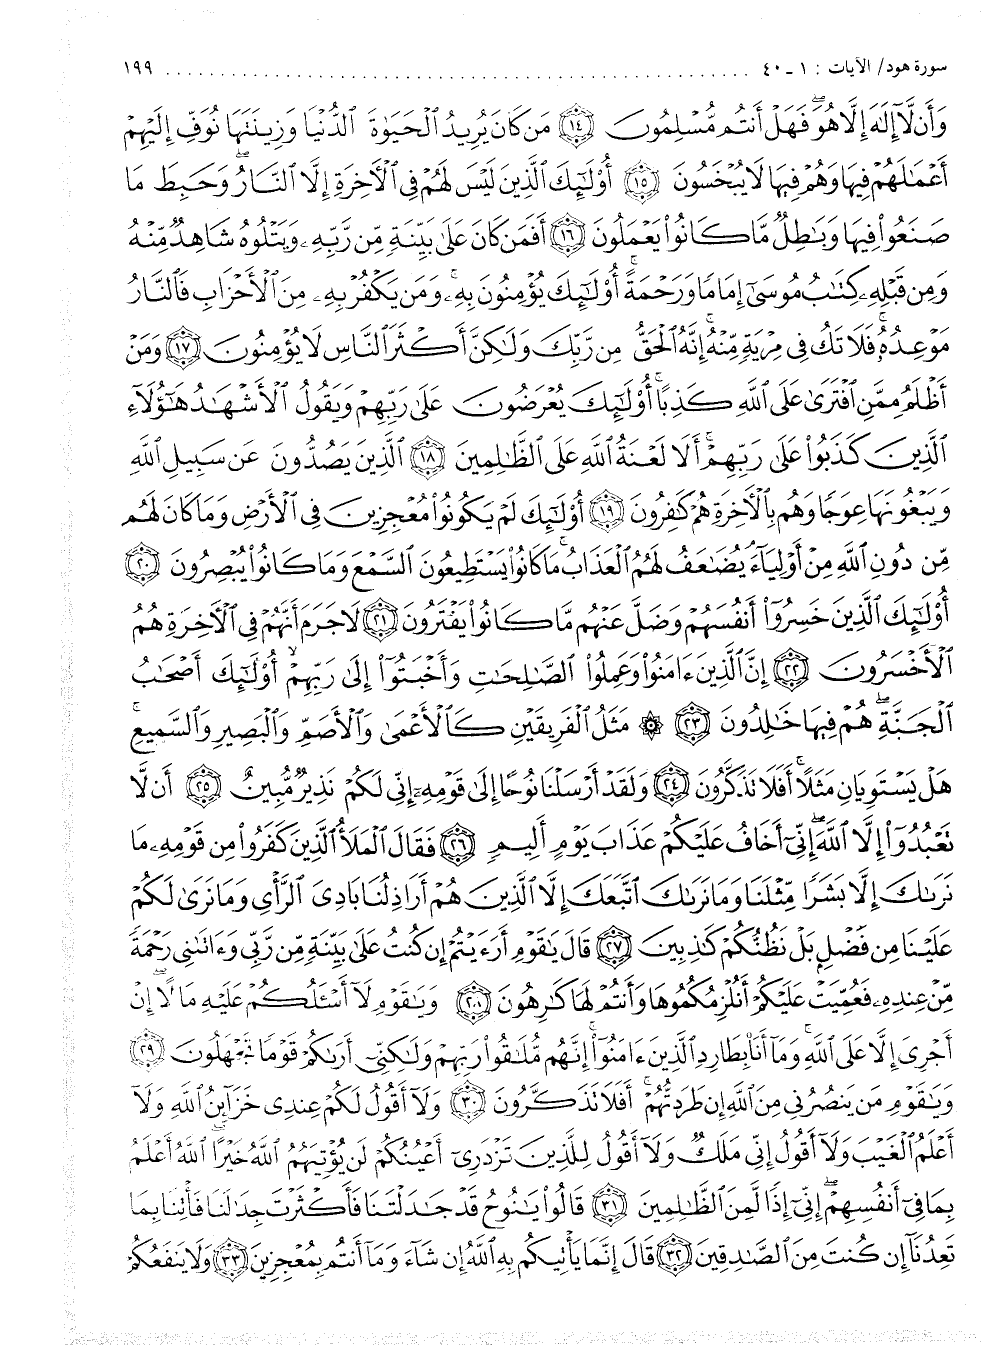 سورة هود/ الآيات : ١ ـ ٤٠ ........................................ ١٩٩
وَأَن لَّآ إِلَٰهَ إِلَّا هُوَۖ فَهَلْ أَنتُم مُّسْلِمُونَ ﴿١٤﴾ مَن كَانَ يُرِيدُ ٱلْحَيَوٰةَ ٱلدُّنْيَا وَزِينَتَهَا نُوَفِّ إِلَيْهِمْ
أَعْمَٰلَهُمْ فِيهَا وَهُمْ فِيهَا لَا يُبْخَسُونَ ﴿١٥﴾ أُو۟لَٰٓئِكَ ٱلَّذِينَ لَيْسَ لَهُمْ فِى ٱلْأَخِرَةِ إِلَّا ٱلنَّارُۖ وَحَبِطَ مَا
صَنَعُوا۟ فِيهَا وَبَٰطِلٌ مَّا كَانُوا۟ يَعْمَلُونَ ﴿١٦﴾ أَفَمَن كَانَ عَلَىٰ بَيِّنَةٍ مِّن رَّبِّهِۦ وَيَتْلُوهُ شَاهِدٌ مِّنْهُ
وَمِن قَبْلِهِۦ كِتَٰبُ مُوسَىٰٓ إِمَامًا وَرَحْمَةًۚ أُو۟لَٰٓئِكَ يُؤْمِنُونَ بِهِۦۚ وَمَن يَكْفُرْ بِهِۦ مِنَ ٱلْأَحْزَابِ فَٱلنَّارُ
مَوْعِدُهُۥۚ فَلَا تَكُ فِى مِرْيَةٍ مِّنْهُۚ إِنَّهُ ٱلْحَقُّ مِن رَّبِّكَ وَلَٰكِنَّ أَكْثَرَ ٱلنَّاسِ لَا يُؤْمِنُونَ ﴿١٧﴾ وَمَنْ
أَظْلَمُ مِمَّنِ ٱفْتَرَىٰ عَلَى ٱللَّهِ كَذِبًاۚ أُو۟لَٰٓئِكَ يُعْرَضُونَ عَلَىٰ رَبِّهِمْ وَيَقُولُ ٱلْأَشْهَٰدُ هَٰٓؤُلَآءِ
ٱلَّذِينَ كَذَبُوا۟ عَلَىٰ رَبِّهِمْۚ أَلَا لَعْنَةُ ٱللَّهِ عَلَى ٱلظَّٰلِمِينَ ﴿١٨﴾ ٱلَّذِينَ يَصُدُّونَ عَن سَبِيلِ ٱللَّهِ
وَيَبْغُونَهَا عِوَجًا وَهُم بِٱلْأَخِرَةِ هُمْ كَٰفِرُونَ ﴿١٩﴾ أُو۟لَٰٓئِكَ لَمْ يَكُونُوا۟ مُعْجِزِينَ فِى ٱلْأَرْضِ وَمَا كَانَ لَهُم
مِّن دُونِ ٱللَّهِ مِنْ أَوْلِيَآءَۘ يُضَٰعَفُ لَهُمُ ٱلْعَذَابُۚ مَا كَانُوا۟ يَسْتَطِيعُونَ ٱلسَّمْعَ وَمَا كَانُوا۟ يُبْصِرُونَ ﴿٢٠﴾
أُو۟لَٰٓئِكَ ٱلَّذِينَ خَسِرُوٓا۟ أَنفُسَهُمْ وَضَلَّ عَنْهُم مَّا كَانُوا۟ يَفْتَرُونَ ﴿٢١﴾ لَا جَرَمَ أَنَّهُمْ فِى ٱلْأَخِرَةِ هُمُ
ٱلْأَخْسَرُونَ ﴿٢٢﴾ إِنَّ ٱلَّذِينَ ءَامَنُوا۟ وَعَمِلُوا۟ ٱلصَّٰلِحَٰتِ وَأَخْبَتُوٓا۟ إِلَىٰ رَبِّهِمْۙ أُو۟لَٰٓئِكَ أَصْحَٰبُ
ٱلْجَنَّةِۖ هُمْ فِيهَا خَٰلِدُونَ ﴿٢٣﴾ ۞ مَثَلُ ٱلْفَرِيقَيْنِ كَٱلْأَعْمَىٰ وَٱلْأَصَمِّ وَٱلْبَصِيرِ وَٱلسَّمِيعِۚ
هَلْ يَسْتَوِيَانِ مَثَلًاۚ أَفَلَا تَذَكَّرُونَ ﴿٢٤﴾ وَلَقَدْ أَرْسَلْنَا نُوحًا إِلَىٰ قَوْمِهِۦٓ إِنِّى لَكُمْ نَذِيرٌ مُّبِينٌ ﴿٢٥﴾ أَن لَّا
تَعْبُدُوٓا۟ إِلَّا ٱللَّهَۖ إِنِّىٓ أَخَافُ عَلَيْكُمْ عَذَابَ يَوْمٍ أَلِيمٍ ﴿٢٦﴾ فَقَالَ ٱلْمَلَأُ ٱلَّذِينَ كَفَرُوا۟ مِن قَوْمِهِۦ مَا
نَرَىٰكَ إِلَّا بَشَرًا مِّثْلَنَا وَمَا نَرَىٰكَ ٱتَّبَعَكَ إِلَّا ٱلَّذِينَ هُمْ أَرَاذِلُنَا بَادِىَ ٱلرَّأْىِ وَمَا نَرَىٰ لَكُمْ
عَلَيْنَا مِن فَضْلٍۭ بَلْ نَظُنُّكُمْ كَٰذِبِينَ ﴿٢٧﴾ قَالَ يَٰقَوْمِ أَرَءَيْتُمْ إِن كُنتُ عَلَىٰ بَيِّنَةٍ مِّن رَّبِّى وَءَاتَىٰنِى رَحْمَةً
مِّنْ عِندِهِۦ فَعُمِّيَتْ عَلَيْكُمْ أَنُلْزِمُكُمُوهَا وَأَنتُمْ لَهَا كَٰرِهُونَ ﴿٢٨﴾ وَيَٰقَوْمِ لَآ أَسْـَٔلُكُمْ عَلَيْهِ مَالًاۖ إِنْ
أَجْرِىَ إِلَّا عَلَى ٱللَّهِۚ وَمَآ أَنَا۠ بِطَارِدِ ٱلَّذِينَ ءَامَنُوٓا۟ۚ إِنَّهُم مُّلَٰقُوا۟ رَبِّهِمْ وَلَٰكِنِّىٓ أَرَىٰكُمْ قَوْمًا تَجْهَلُونَ ﴿٢٩﴾
وَيَٰقَوْمِ مَن يَنصُرُنِى مِنَ ٱللَّهِ إِن طَرَدتُّهُمْۚ أَفَلَا تَذَكَّرُونَ ﴿٣٠﴾ وَلَآ أَقُولُ لَكُمْ عِندِى خَزَآئِنُ ٱللَّهِ وَلَآ
أَعْلَمُ ٱلْغَيْبَ وَلَآ أَقُولُ إِنِّى مَلَكٌ وَلَآ أَقُولُ لِلَّذِينَ تَزْدَرِىٓ أَعْيُنُكُمْ لَن يُؤْتِيَهُمُ ٱللَّهُ خَيْرًاۖ ٱللَّهُ أَعْلَمُ
بِمَا فِىٓ أَنفُسِهِمْۖ إِنِّىٓ إِذًا لَّمِنَ ٱلظَّٰلِمِينَ ﴿٣١﴾ قَالُوا۟ يَٰنُوحُ قَدْ جَٰدَلْتَنَا فَأَكْثَرْتَ جِدَٰلَنَا فَأْتِنَا بِمَا
تَعِدُنَآ إِن كُنتَ مِنَ ٱلصَّٰدِقِينَ ﴿٣٢﴾ قَالَ إِنَّمَا يَأْتِيكُم بِهِ ٱللَّهُ إِن شَآءَ وَمَآ أَنتُم بِمُعْجِزِينَ ﴿٣٣﴾ وَلَا يَنفَعُكُمْ